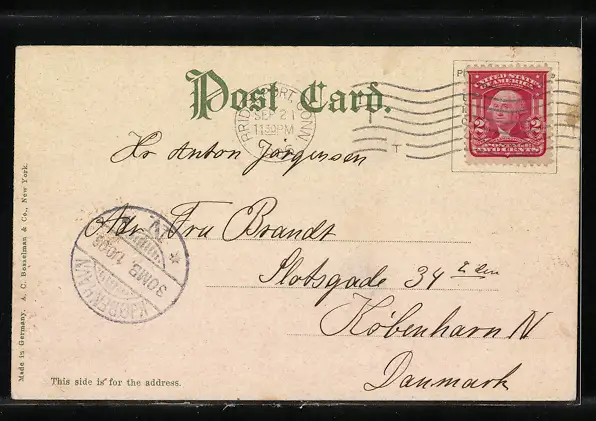 Post Card.
BRIDGEPORT, CONN
SEP 21
1130PM
UNITED STATES
OF AMERICA
2 2
POSTAGE
TWO CENTS
T
T
Hr Anton Jørgensen
Adr. Fru Brandt
Slotsgade 34
København N
Danmark
KJØBENHAVN
N
This side is for the address.
Made in Germany. A. C. Bosselman & Co., New York.